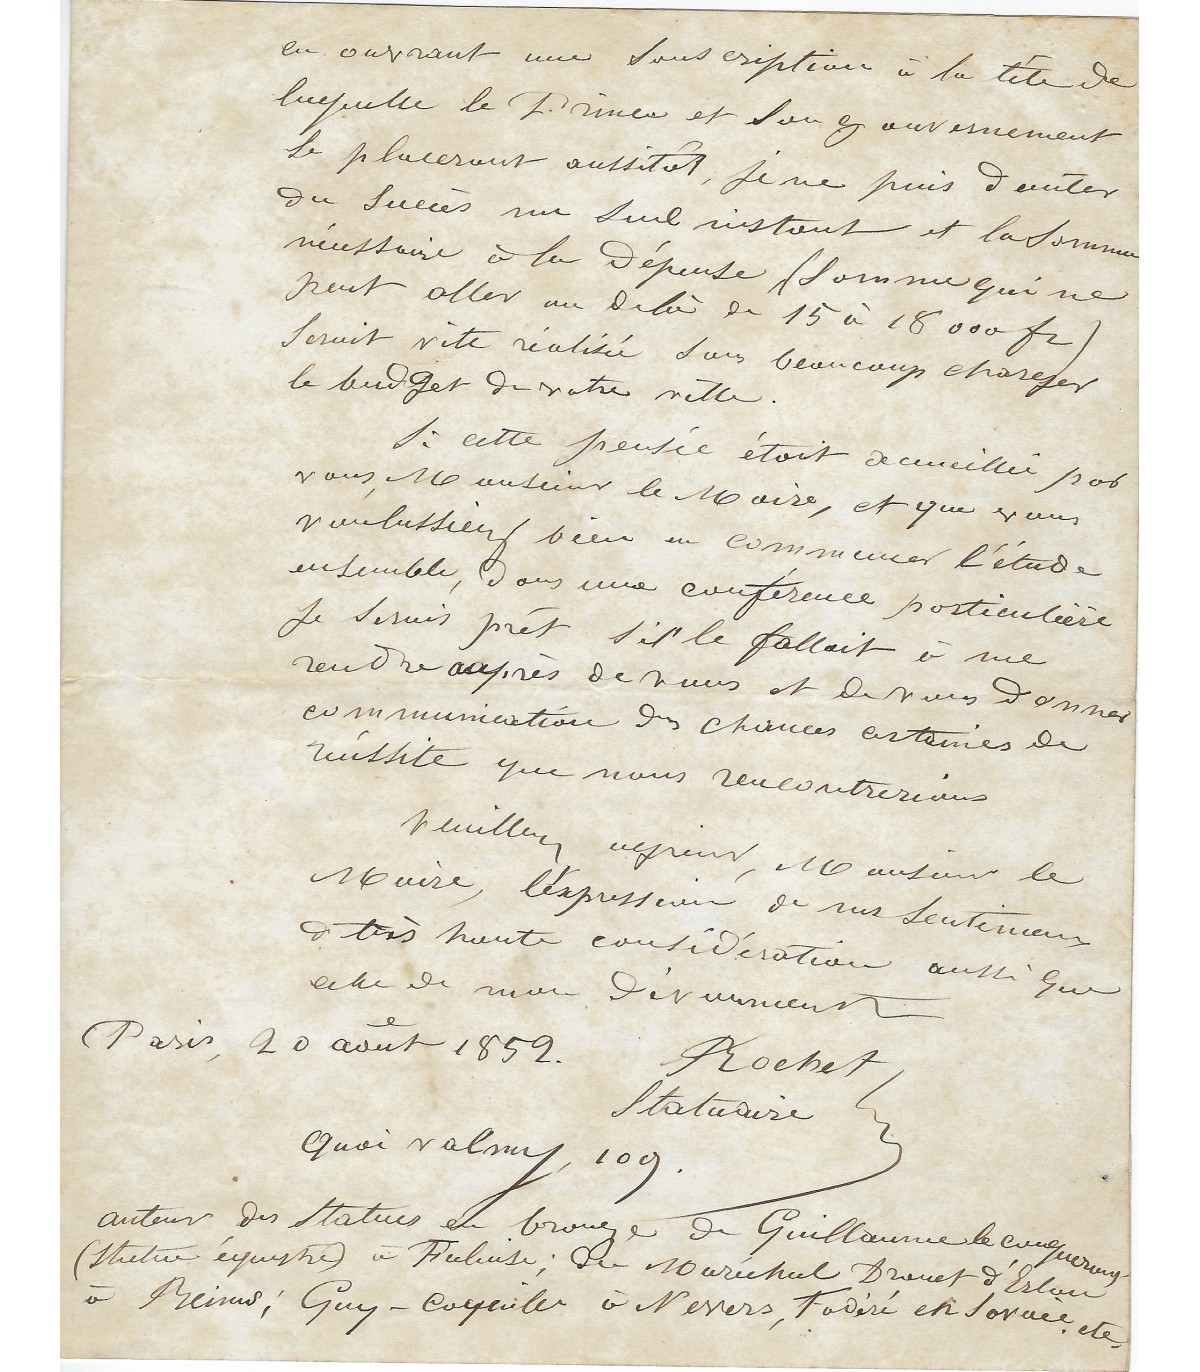 en ouvrant une Souscription à la tête de
laquelle le Prince et Son gouvernement
Se placeront aussitôt, je ne puis douter
du Succès un Seul instant et la Somme
nécessaire à la dépense (Somme qui ne
peut aller au delà de 15 à 18 000 fr)
Serait vite réalisée sans beaucoup charger
le budget de votre ville.
Si cette pensée était accueillie par
vous, Monsieur le Maire, et que vous
voulussiez bien en commencer l'étude
ensemble, dans une conférence particulière
je Serais prêt S'il le fallait à me
rendre auprès de vous et de vous donner
communication des chances certaines de
réussite que nous rencontrerions
Veuillez agréer, Monsieur le
Maire, l'expression de mes Sentimens
de très haute considération aussi que
celle de mon dévoument
Paris, 20 août 1852.
Rochet
Statuaire
quai valmy, 109.
auteur des Statues en bronze de Guillaume le conquérant
(Statue équestre) à Falaise; du Maréchal Drouet d'Erlon
à Reims; Guy-coquille à Nevers, Fodéré en Savoie. etc.